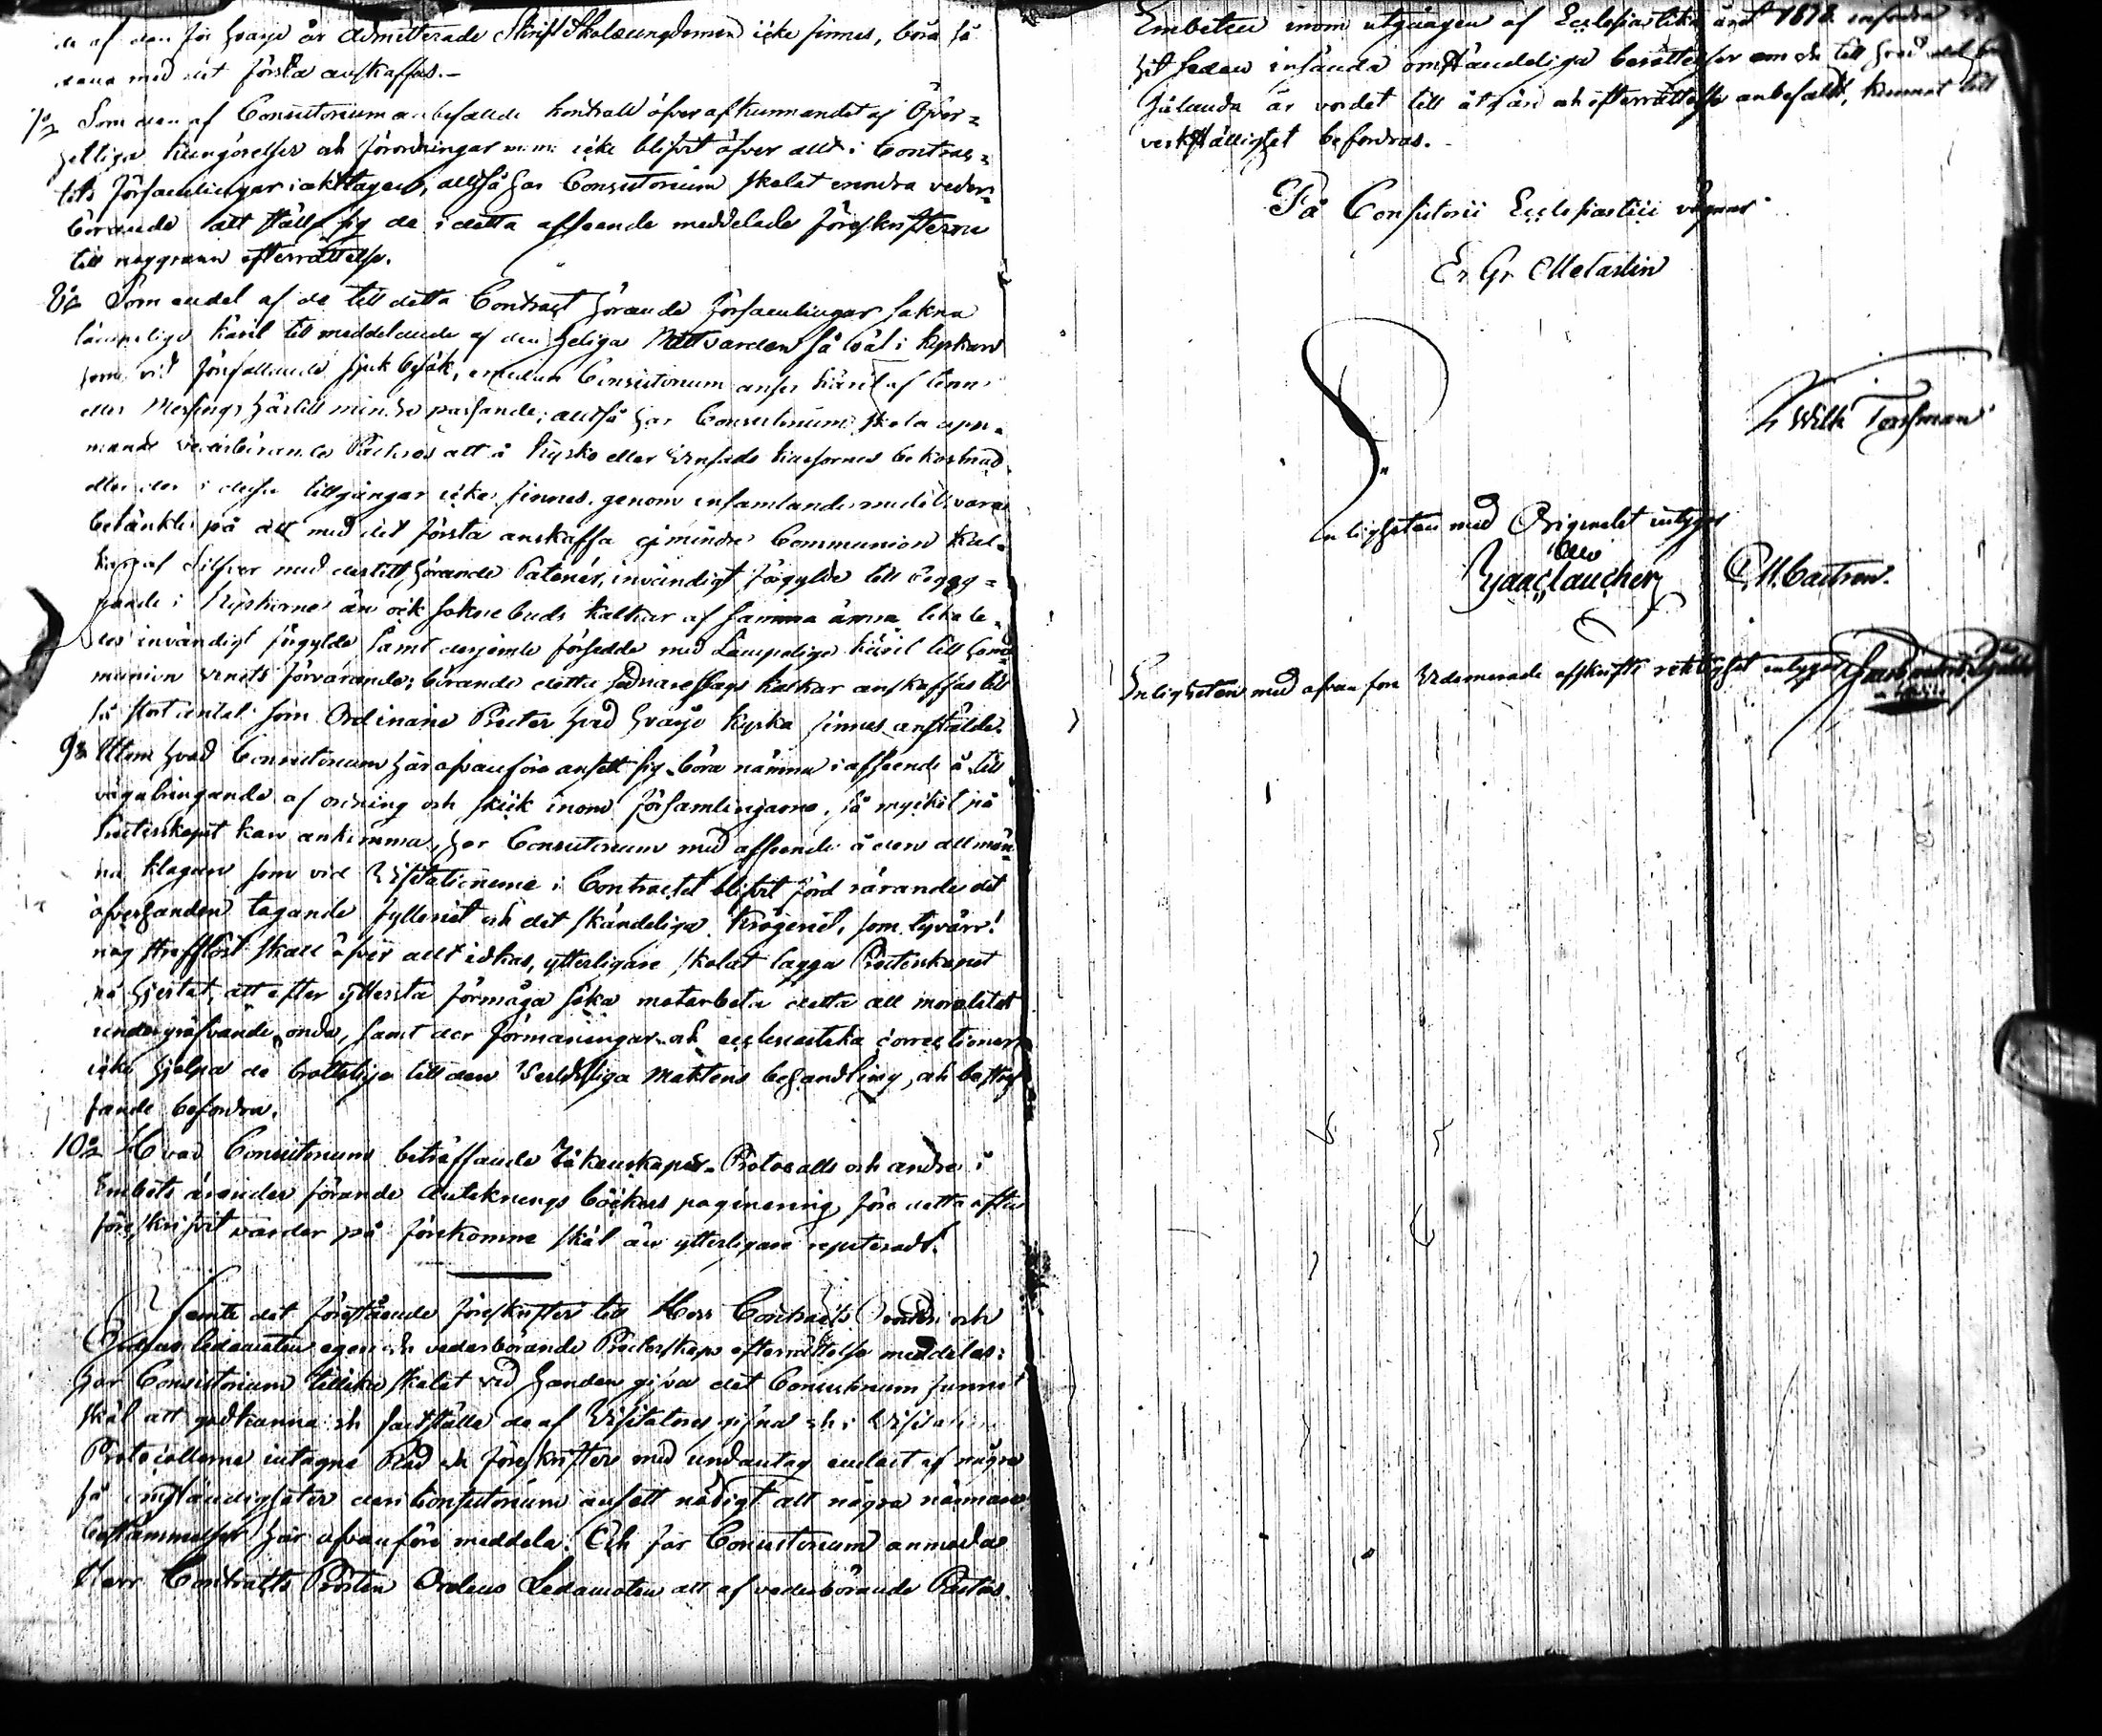 af den för hvarje år admitterade Skriftskoleungdomen icke finnes, böra så
dana med det första anskaffas.-
7:o Som den af Consistorium anbefallde kontroll öfver afkunnandet af Öfver=
hetliga kungörelser och förordningar m.m. icke blifvit öfver allt i Contrac=
tets församlingar iakttagen; alltså har Consistorium skolat erindra veder=
börande att ställa sig de i detta afseende meddelade föreskrifterne
till noggrann efterrättelse.
8:o Som endel af de till detta Contract hörande församlingar sakna
lämpeliga käril till meddelande af den heliga Nattvarden så wäl i kyrkan
som vid förefallande sjuk besök, emedan Consistorium anser käril af tenn
eller Messing härtill mindre passande; alltså har Consistorium skola upp=
mana vederbörande Pastores att å kyrko eller kassornes bekostnad
eller der i dessa tillgångar icke finnes, genom insamlande medel vara
betänkte på att med det första anskaffa ej mindre Communion kal=
kar af Silfver med dertill hörande Patener, invändigt förgyllde till begag=
nande i kyrkorne än ock sokne buds kalkar af samma ämne likale=
des invändigt förgyllde samt derjemte försedde med Lämpeliga käril till Com=
munion vinets förvarande; börande detta sednare slags kalkar anskaffas till
så stort antal som Ordinarie Prester hvid hvarje kyrka finnes anstälde.
9:o Utom hvad Consistorium här ofvanföre ansett sig böra nämna i afseende å till
vägabringande af ordning och skick inom församlingarne, så mycket på
Presterskapet kan ankomma, har Consistorium med afseende å den allmän=
na klagan som vid Visitationerne i Contractet blifvit förd rörande det
öfverhanden tagande fylleriet och det skändeliga krögeriet, som tyvärr!
nog strafflöst skall öfver allt idkas, ytterligare skolat lägga Presterskapet
på hjertat, att efter yttersta förmåga söka motarbeta detta all moralitet
undergräfvande onda, samt der förmaningar och ecclesiastika correctioner
icke hjelpa de brottslige till den Verldsliga Maktens behandling, och bestraf
fande befordra.
10:o Hvad Consistorium beträffande Räkenskaper Protocolls och andra i
Embets ärender förande Anteknings böckers paginering före detta ofta
föreskrifvit varder på förekomne skäl än ytterligare repeteradt.
Jemte det förestående föreskrifter till Herr Contracts Prosten och
Ordens Ledamoten egen och vederbörande Presterskaps efterrättelse meddelas;
har Consistorium tillika skolat vid handen gifva det Consistorium funnit
skäl att godkänna och fastställa de af Visitator gifna och i Visitations
Protocollerna intagne Råd och föreskrifter med undantag endast af några
få omständigheter deri Consistorium ansett nödigt att några närmare
bestämmelser här ofvanföre meddela. Och får Consistorium anmoda
Herr Contracts Prosten Ordens Ledamoten att af vederbörande Pastors
Embeten inom utgången af Ecclesiastika året 1878 infordra
hit sedan insända omständeliga berättelser om de till hvad
sålunda är vordet till åtgärd och efterrättelse anbefaldt, kunnat till
verkställighet befordras.-
På Consistorii Ecclesiastici vägnar
Er Gr Melartin
Wilh Forsman
Enligheten med Originalet intyga
Isaac Laucher
M. Castren.
Enligheten med ofvan före Vidimerade afskrifts riktighet intygar